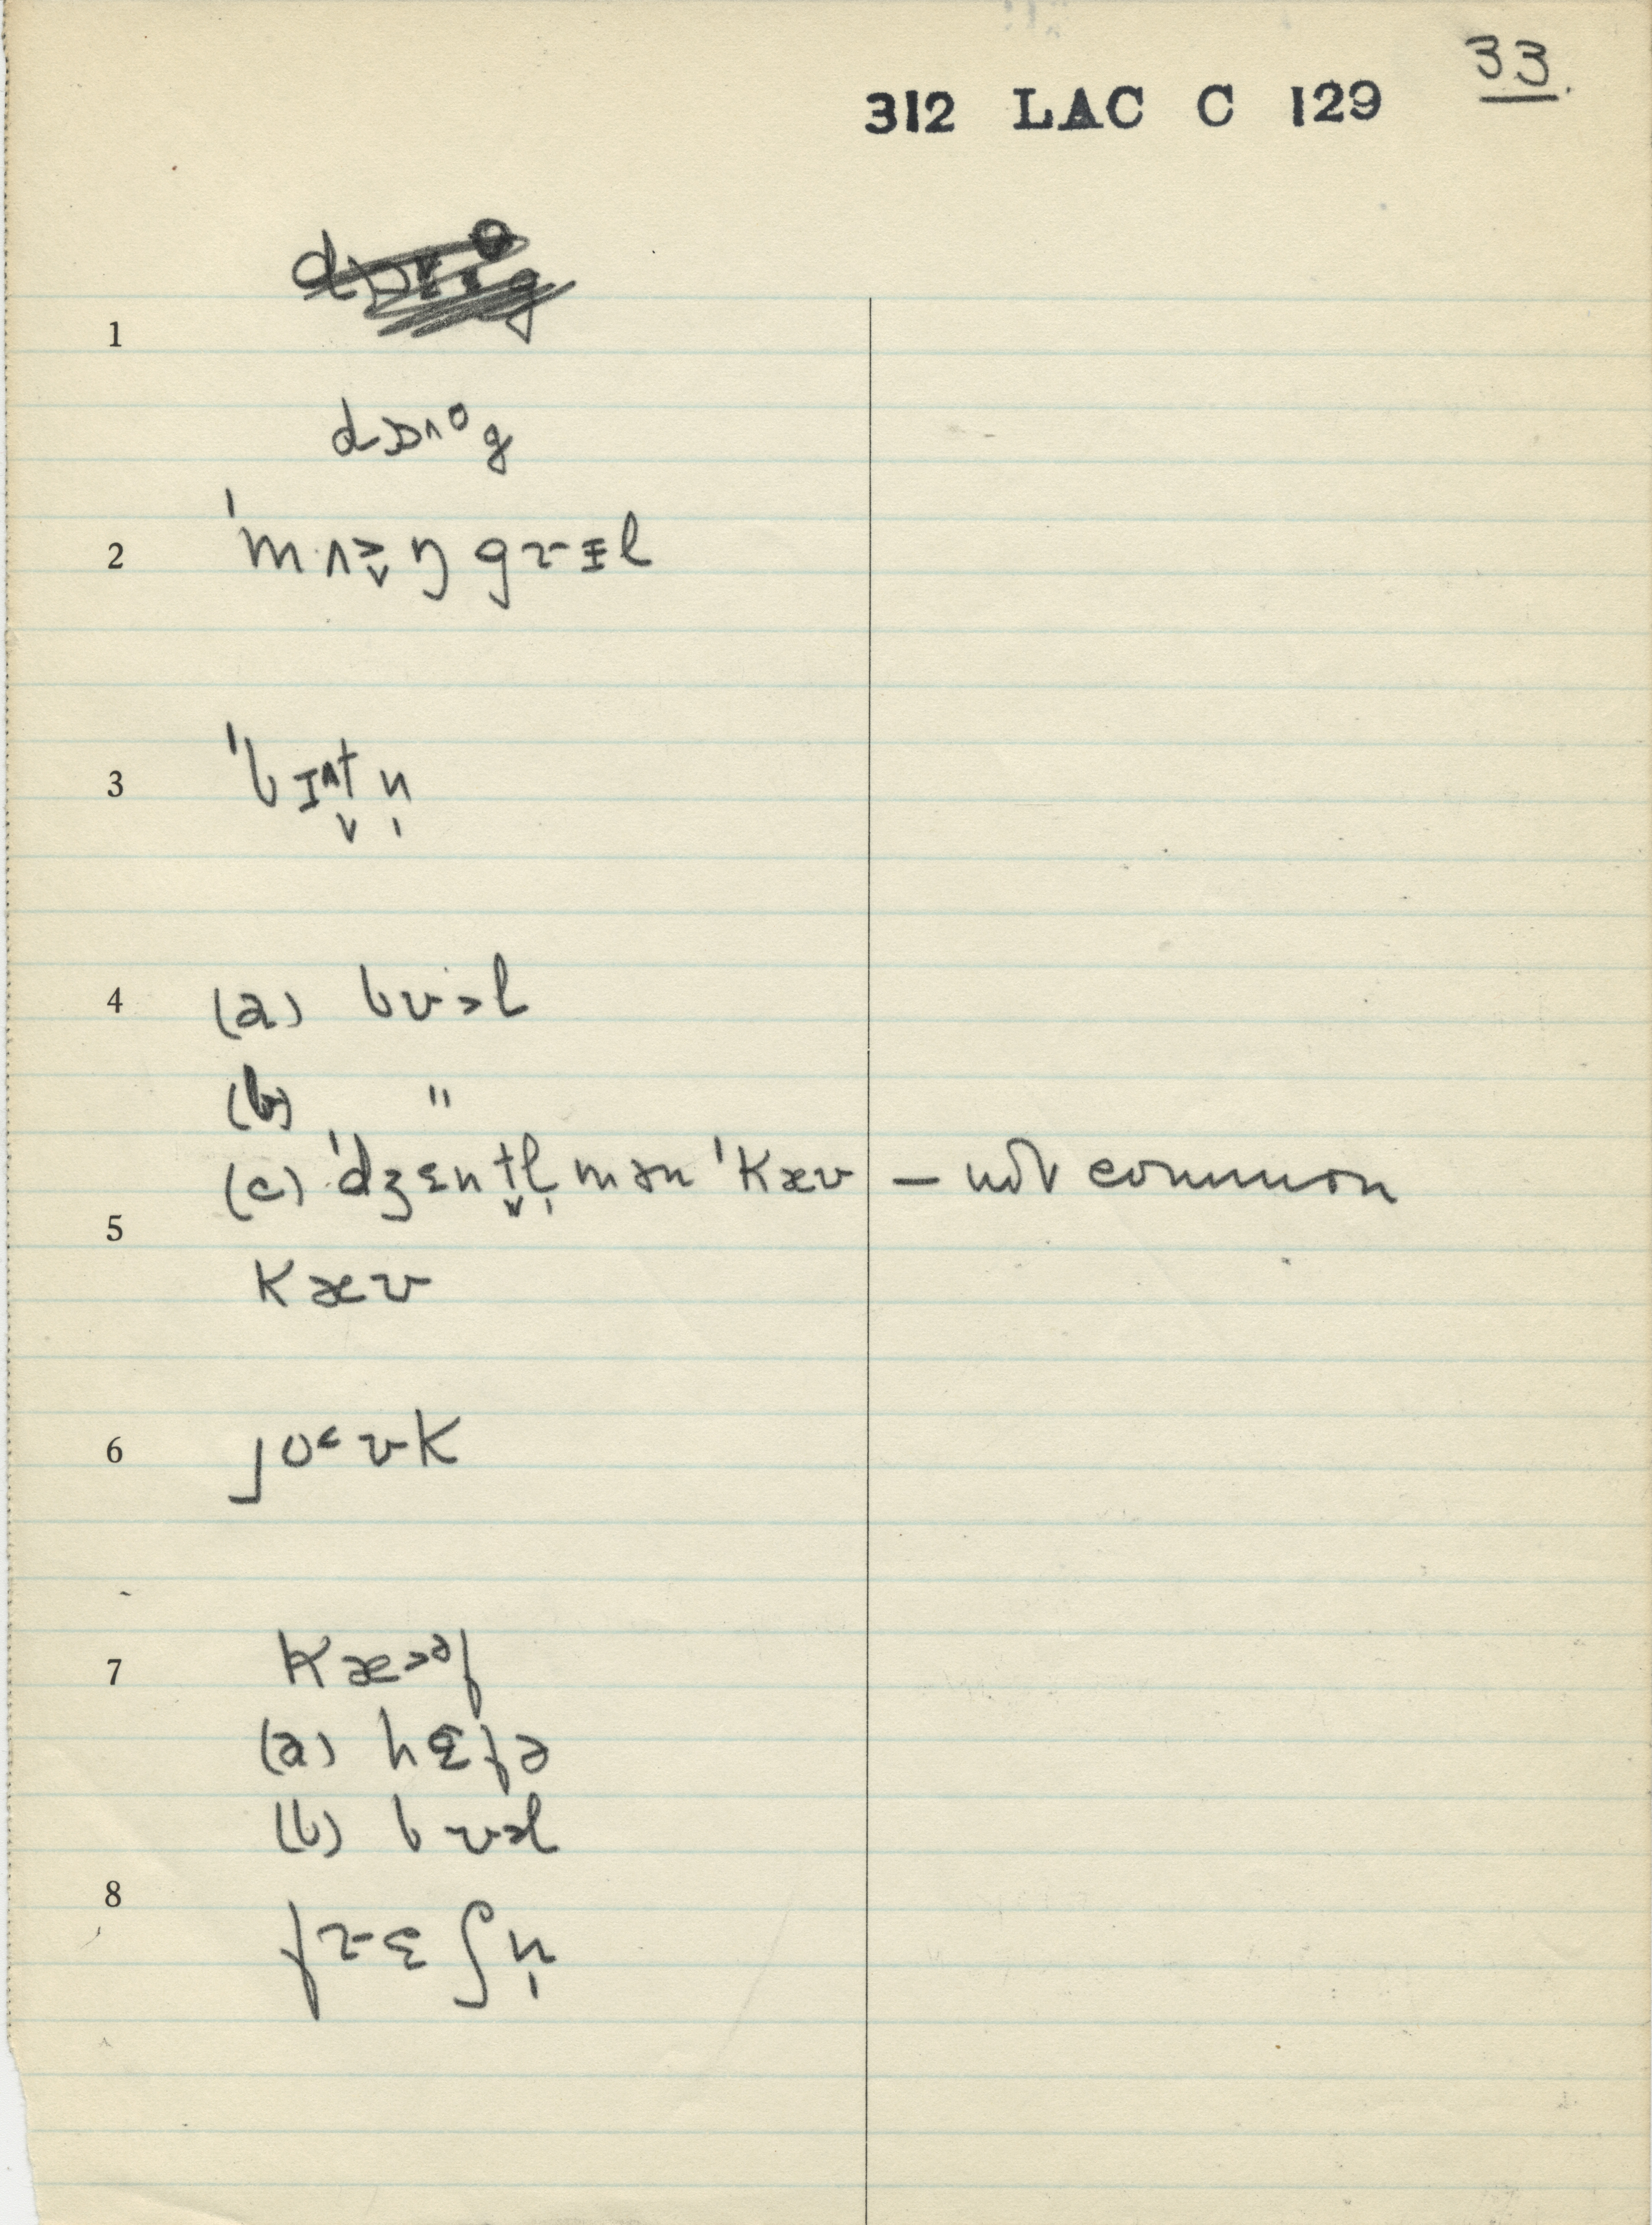 33.
312 LAC C 129
1
dɒ˄ᵒg
2 ˈmʌ˃̬ŋgɤɪl
3 ˈbɪ˄t̬n̩
4 (a) bʊ˃l
(b) "
(c) ˈdʒɛnt̬l̩mən ˈkæʊ — not common
5
kæʊ
6 jo˂ʊk
7 kæ˃əf
(a) hɛfə
(b) bʊ˃l
8
fɤɛʃn̩